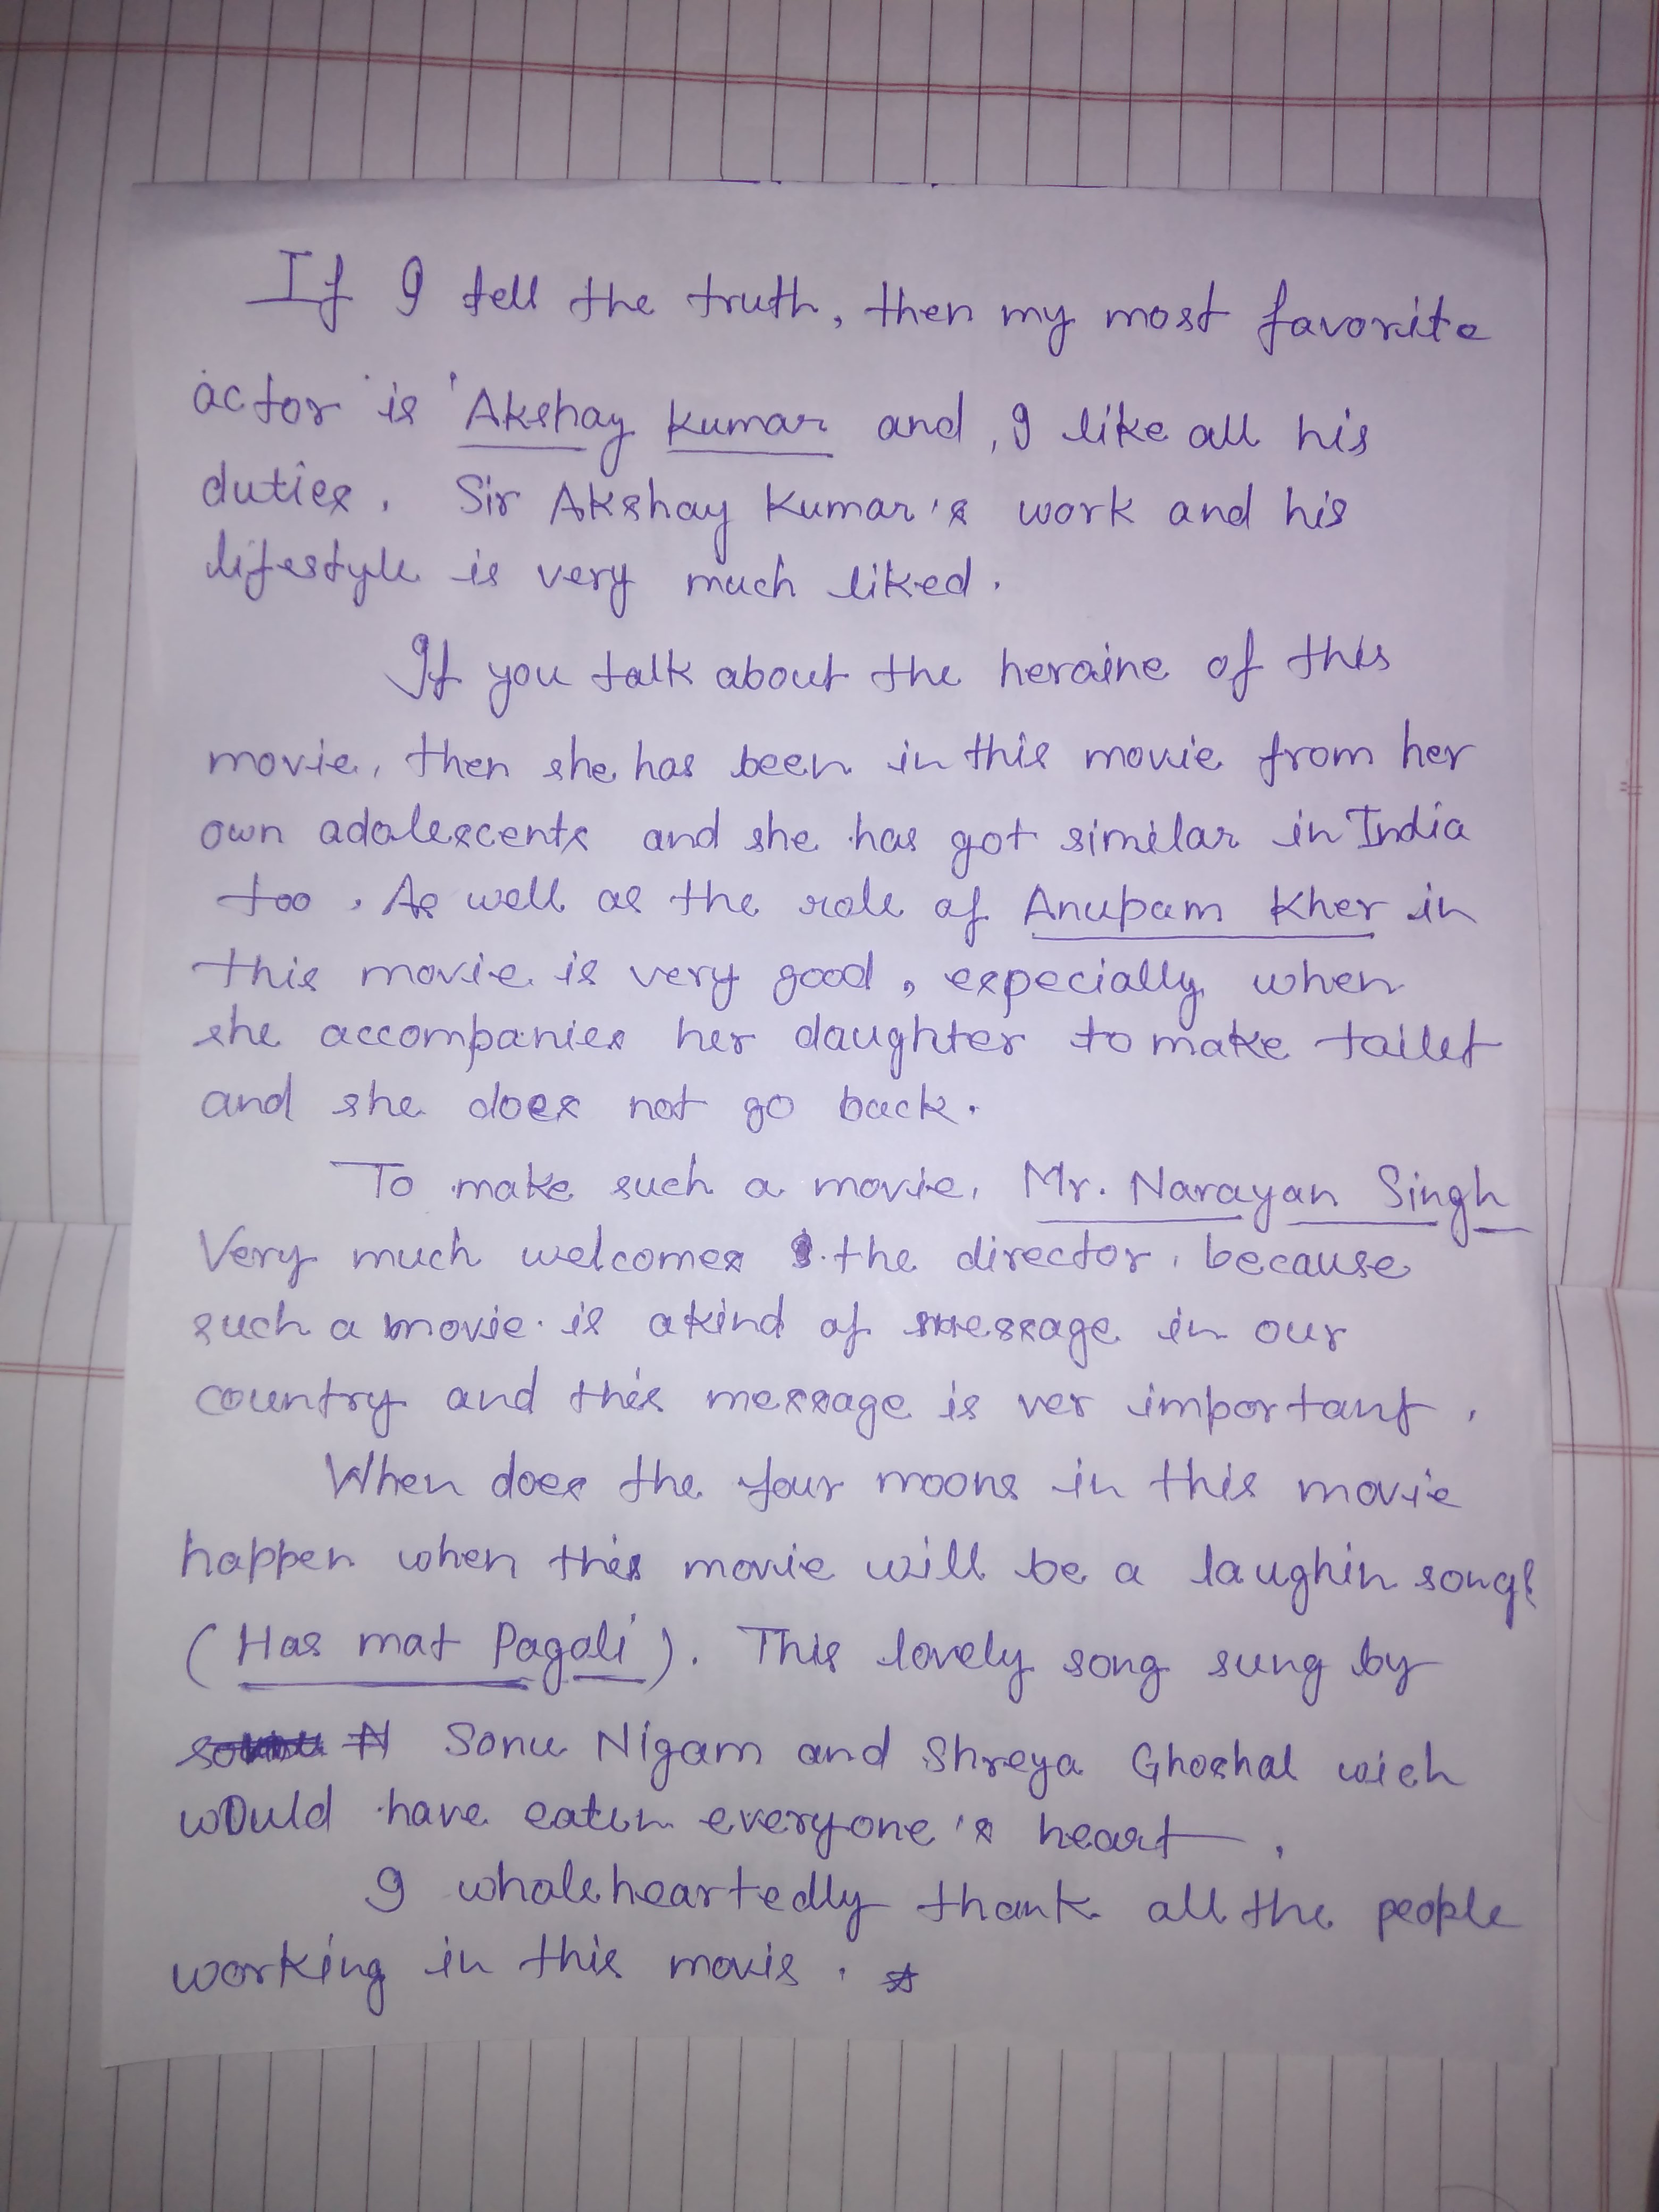 If I tell the truth, then my most favorite
actor is 'Akshay kumar and, I like all his
duties. Sir Akshay Kumar's work and his
lifestyle is very much liked.
If you talk about the heraine of this
movie, then she has been in this movie from her
own adolescents and she has got similar in India
too. As well as the role of Anupam Kher in
this movie is very good, especially when
she accompanies her daughter to make toilet
and she does not go back.
To make such a movie, Mr. Narayan Singh
Very much welcomes the director, because
such a movie is a kind of message in our
country and this message is ver important.
When does the four moons in this movie
happen when this movie will be a laughin song!
(Has mat Pagali). This lovely song sung by
Sonu Nigam and Shreya Ghoshal wich
would have eaten everyone's heart.
I wholeheartedly thank all the people
working in this movis.